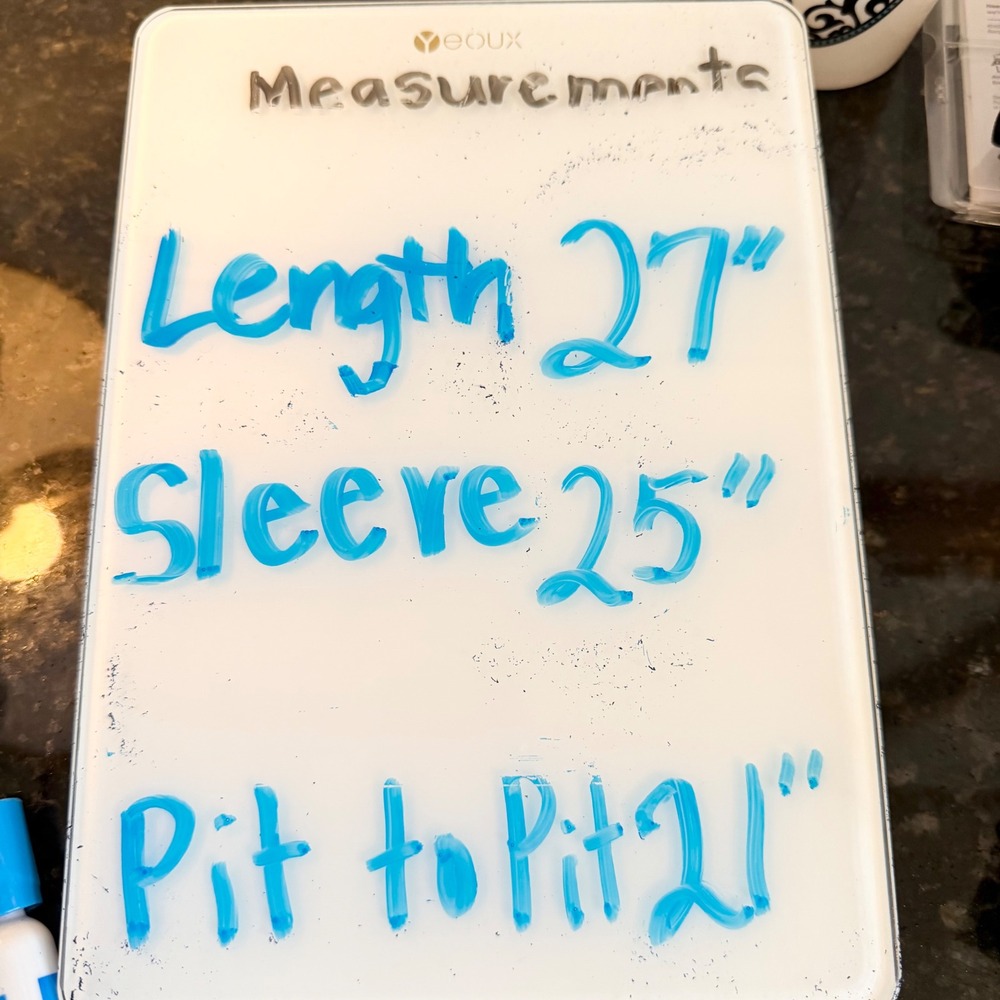 Yeoux
Measurements
Length 27"
Sleeve 25"
Pit to Pit 21"